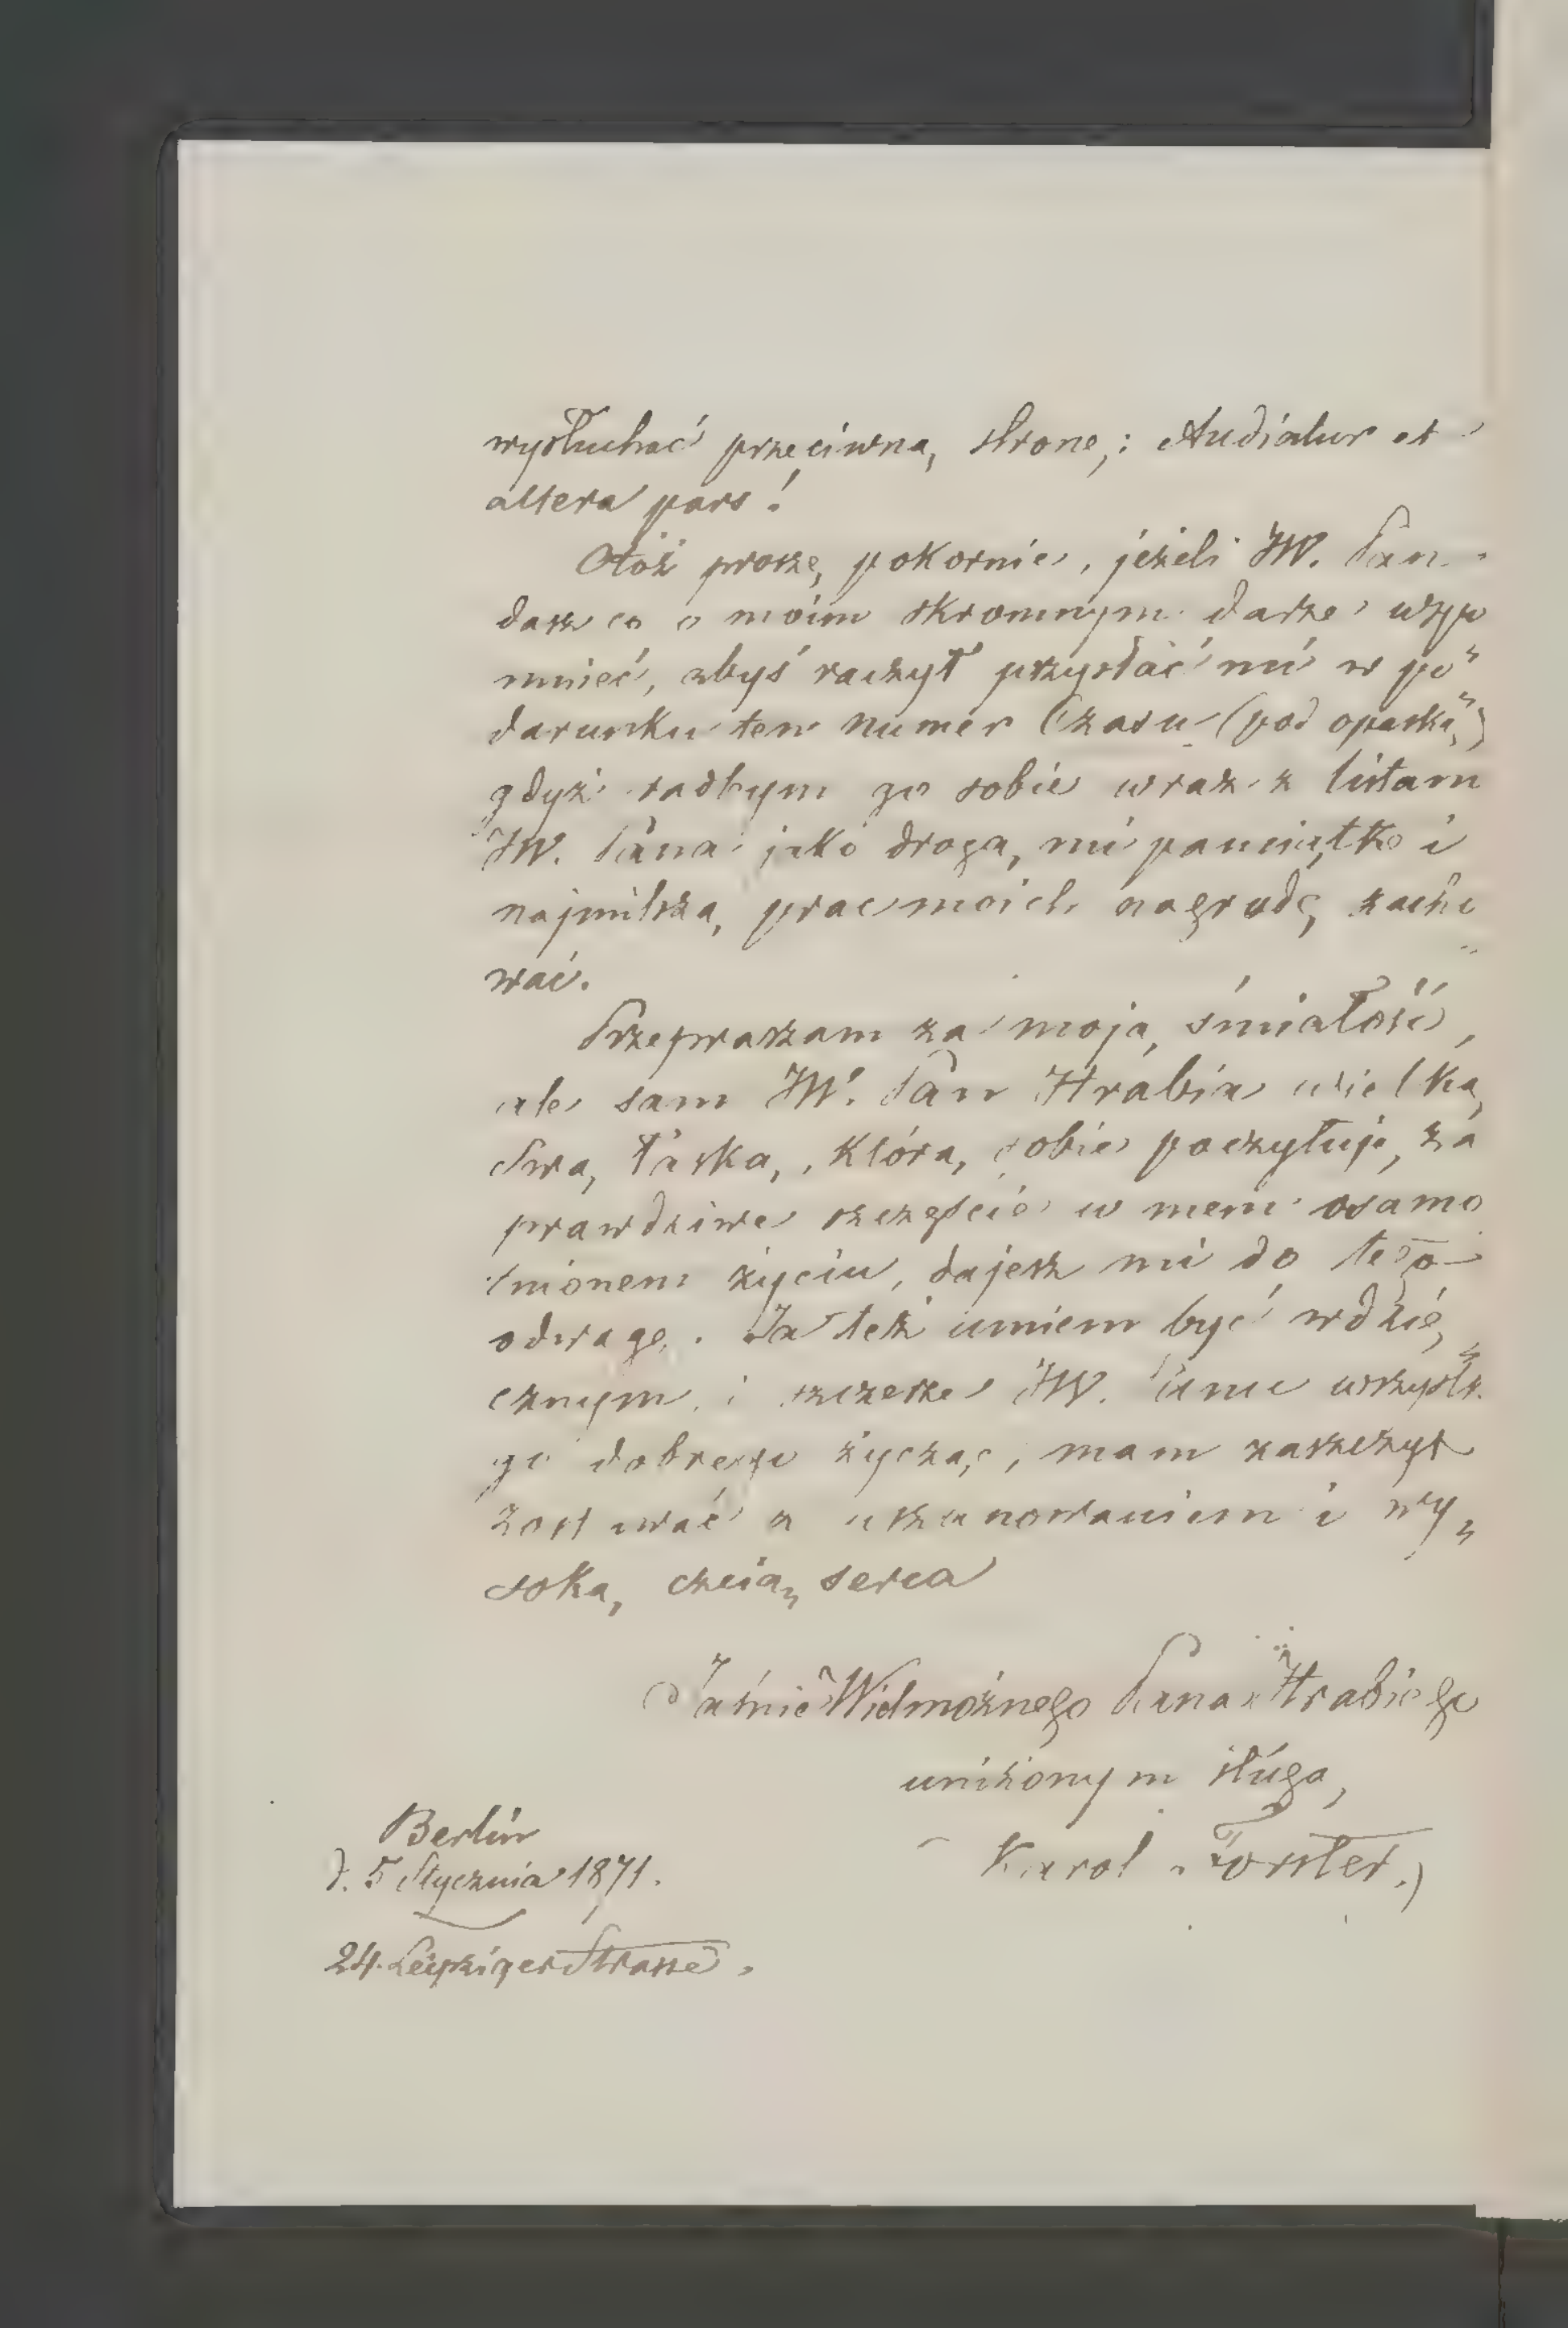 wysłuchać przeciwną stronę: Audiatur et
altera pars!
Otóż proszę pokornie, jeżeli JW. Pan
dasz co o moim skromnym darze wspo
mnieć, abyś raczył przysłać mi w po„
darunku ten numer Czasu (pod opaską)
gdyż radbym go sobie wraz z listam
JW. Pana jako drogą mi pamiątkę i
najmilszą prac moich nagrodę zacho
wać.
Przepraszam za moją śmiałość,
ale sam JW. Pan Hrabia wielką
Swą łaską, którą sobie poczytuję za
prawdziwe szczęście w mem osamo
tnionem życiu, dajesz mi do tego
odwagę. Ja też umiem być wdzię„
cznym i szczerze JW. Panu wszystk
go dobrego życząc, mam zaszczyt
zostawać z uszanowaniem i wy„
soką czcią serca
Jaśnie Wielmożnego Pana Hrabiego
uniżonym sługą,
Karol Forster.
Berlin
d. 5 Stycznia 1871.
24. Leipziger Strasse.